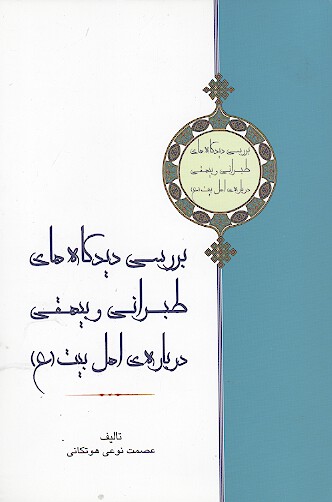 بررسی دیدگاه های
طبرانی و بیهقی
درباره‌ی اهل بیت (ع)
بررسی دیدگاه های
طبرانی و بیهقی
درباره‌ی اهل بیت (ع)
تالیف
عصمت نوعی هوتکانی